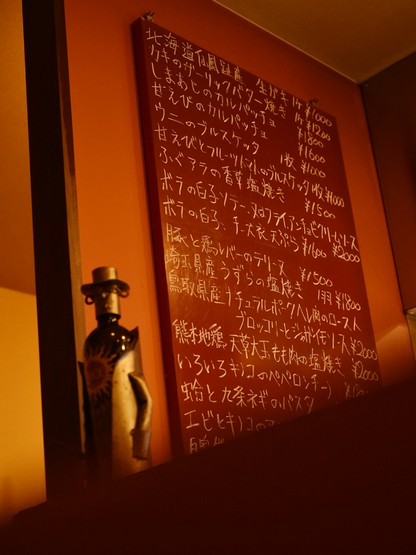 北海道仙鳳趾産 生ガキ 1ヶ ¥1000
カキのガーリックバター焼き 1ヶ ¥1200
しまあじのカルパッチョ ¥1800
甘えびのカルパッチョ ¥1600
ウニのブルスケッタ 1枚 ¥1000
甘えびとフルーツトマトのブルスケッタ 1枚 ¥1000
ふぐアラの香草塩焼き ¥1500
ボラの白子ソテー アンチョビクリームソース ¥2000
ボラの白子、チーズ衣天ぷら ¥1600
豚と鶏レバーのテリーヌ ¥1500
埼玉県産うずらの塩焼き 1羽 ¥1800
鳥取県産ナチュラルポークヒレ肉のロースト
ブロッコリーとアンチョビソース ¥2000
熊本地鶏 天草大王もも肉の塩焼き ¥2000
いろいろキノコのペペロンチーノ
蛤と九条ネギのパスタ
エビとキノコの